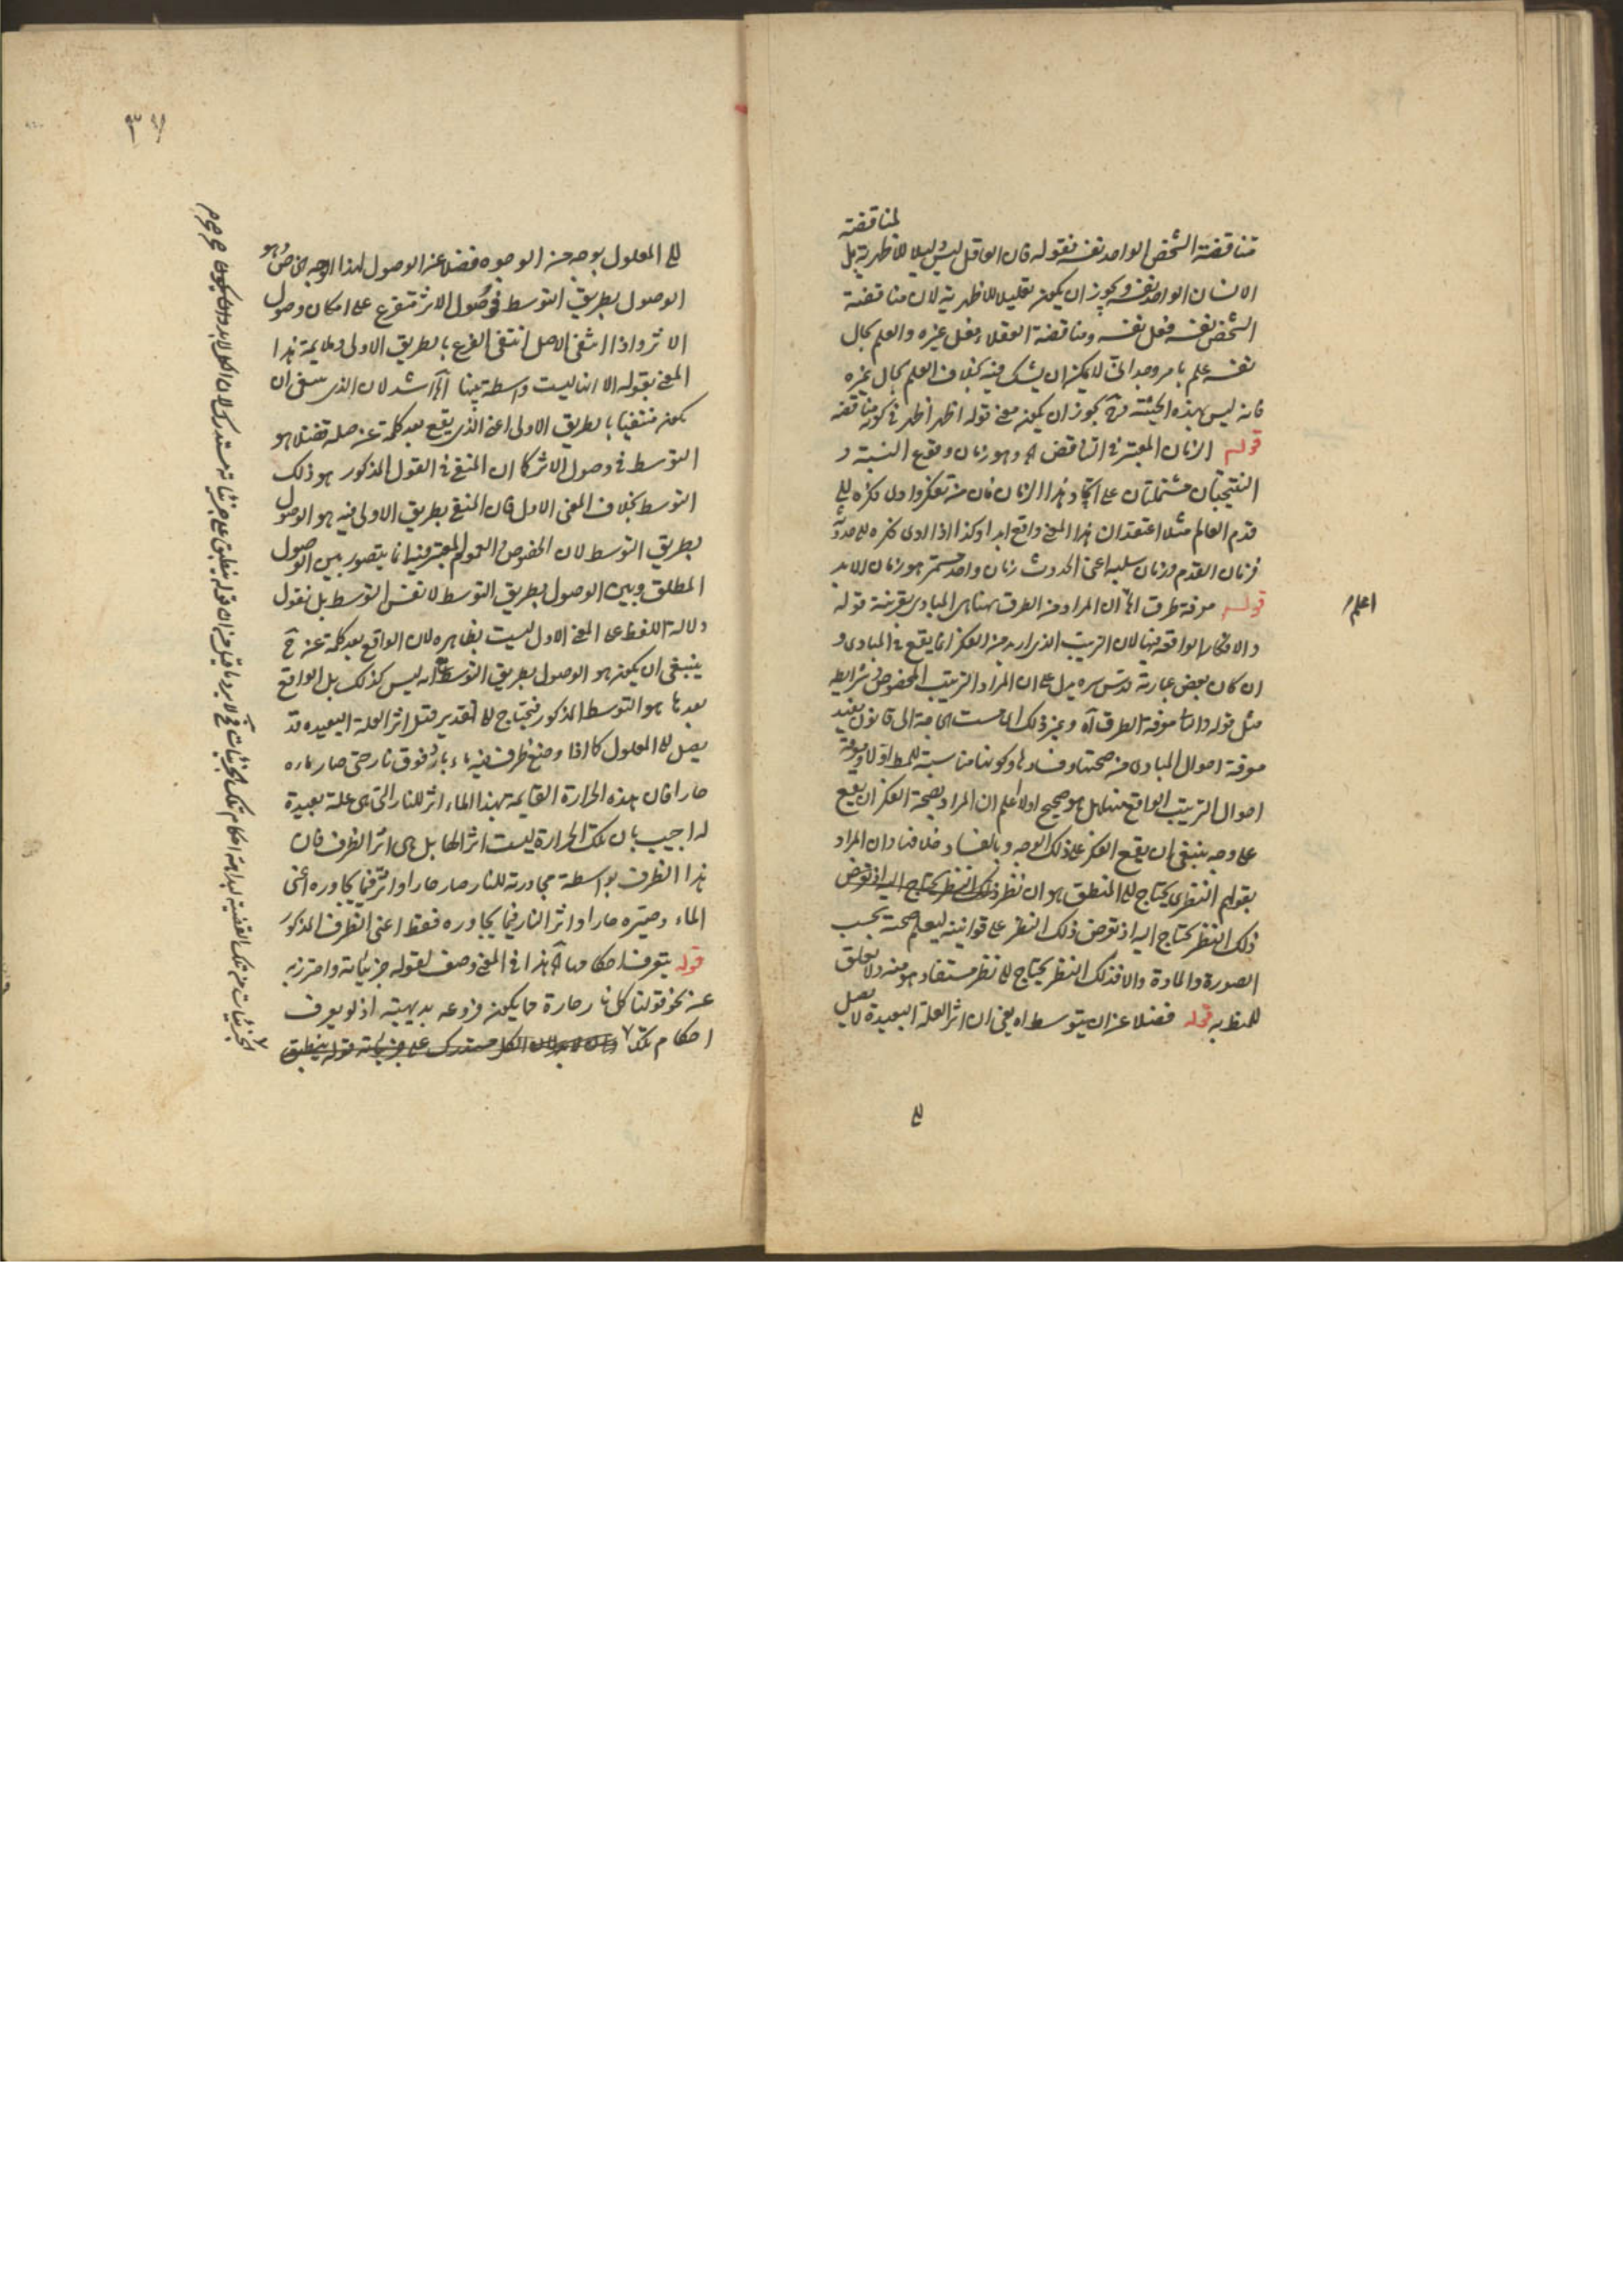 لمناقضة
مناقضة الشخص الواحد نفسه فقوله فان العاقل ليس دليلا للاظهرية بل
الانسان الواحد نفسه ويجوز ان يكون تعليلا للاظهرية لان مناقضة
الشخص نفسه فعل نفسه ومناقضة العقلاء فعل غيره والعلم بحال
نفسه علم بامر وجداني لا يمكن ان يشك فيه بخلاف العلم بحال غيره
فانه ليس بهذه الحيثية وح يجوز ان يكون معنى قوله اظهر اظهر في كونه مناقضه
قوله الزمان المعتبر في التناقض اه وهو زمان وقوع النسبة و
النتيجتان مشتملتان على اتحاد هذا الزمان فان من تفكر وادى فكره الى
قدم العالم مثلا اعتقد ان هذا المعنى واقع ابدا وكذا اذا ادى فكره الى حدوثه
فزمان القدم وزمان سلبه اعني الحدوث زمان واحد مستمر هو زمان الابد
قوله معرفة طرق اه ان المراد من الطرق ههنا هي المبادى بقرينة قوله
والافكار الواقعة فيها لان الترتيب الذي اريد من الفكر انما يقع في المبادى و
ان كان بعض عبارته قدس سره يدل على ان المراد الترتيب المخصوص في شرايطه
مثل قوله معرفة الطرق اه وغير ذلك مست الحاجة الى قانون يفيد
معرفة احوال المبادى من صحتها وفسادها وكونها مناسبة للمط او لا ومعرفة
احوال الترتيب الواقع فيها هل هو صحيح او لا اعلم ان المراد بصحة الفكر ان يقع
على وجه ينبغي ان يقع الفكر على ذلك الوجه وبالفساد خلافه وان المراد
بقولهم النظري يحتاج الى المنطق هو ان نظر ذلك النظر يحتاج اليه اذ تعرض
ذلك النظر يحتاج اليه اذ تعرض ذلك النظر على قوانينه ليعلم صحته بحسب
الصورة والمادة والا فذلك النظر يحتاج الى نظر مستفاد هو منه ولا تعلق
للمنط به قوله فضلا عن ان يتوسط اه يعني ان اثر العلة البعيدة لا يصل
الى
اعلم
٣٧
الى المعلول بوجه من الوجوه فضلا عن الوصول لهذا الوجه الخاص وهو
الوصول بطريق التوسط في وصول الاثر متفرع على امكان وصول
الاثر واذا انتفى الاصل انتفى الفرع بالطريق الاولى وملايمة هذا
المعنى بقوله الا انها ليست واسطة بينهما اه اشد لان الذي ينبغي ان
يكون منتفيا بالطريق الاولى اعني الذي يقع بعد كلمة عن صلة فضلا هو
التوسط في وصول الاثر كما ان المنفي في القول المذكور هو ذلك
التوسط بخلاف المعنى الاول فان المنفي بطريق الاولى فيه هو الوصول
بطريق التوسط لان الخصوص والعموم المعتبر فيه انما يتصور بين الوصول
المطلق وبين الوصول بطريق التوسط لا نفس التوسط بل نقول
دلالة اللفظ على المعنى الاول ليست بظاهره لان الواقع بعد كلمة عن ح
ينبغي ان يكون هو الوصول بطريق التوسط مع انه ليس كذلك بل الواقع
بعدها هو التوسط المذكور فيحتاج الى تقدير قيل اثر العلة البعيده قد
يصل الى المعلول كما اذا وضع ظرف فيه ماء بارد فوق نار حتى صار ماءه
حارا فان هذه الحرارة القايمة بهذا الماء اثر للنار التي هي علة بعيدة
له اجيب بان تلك الحرارة ليست اثرا لها بل هي اثر الظرف فان
هذا الظرف بواسطة مجاورته للنار صار حارا واثر فيما يجاوره اعني
الماء وصيره حارا واثر النار فيما يجاوره فقط اعني الظرف المذكور
قوله يتعرف احكامها اه هذا في المعنى وصف لقوله جزئياته واحترز به
عن نحو قولنا كل نار حارة مما يكون فروعه بديهية اذ لو يعرف
احكام تلك